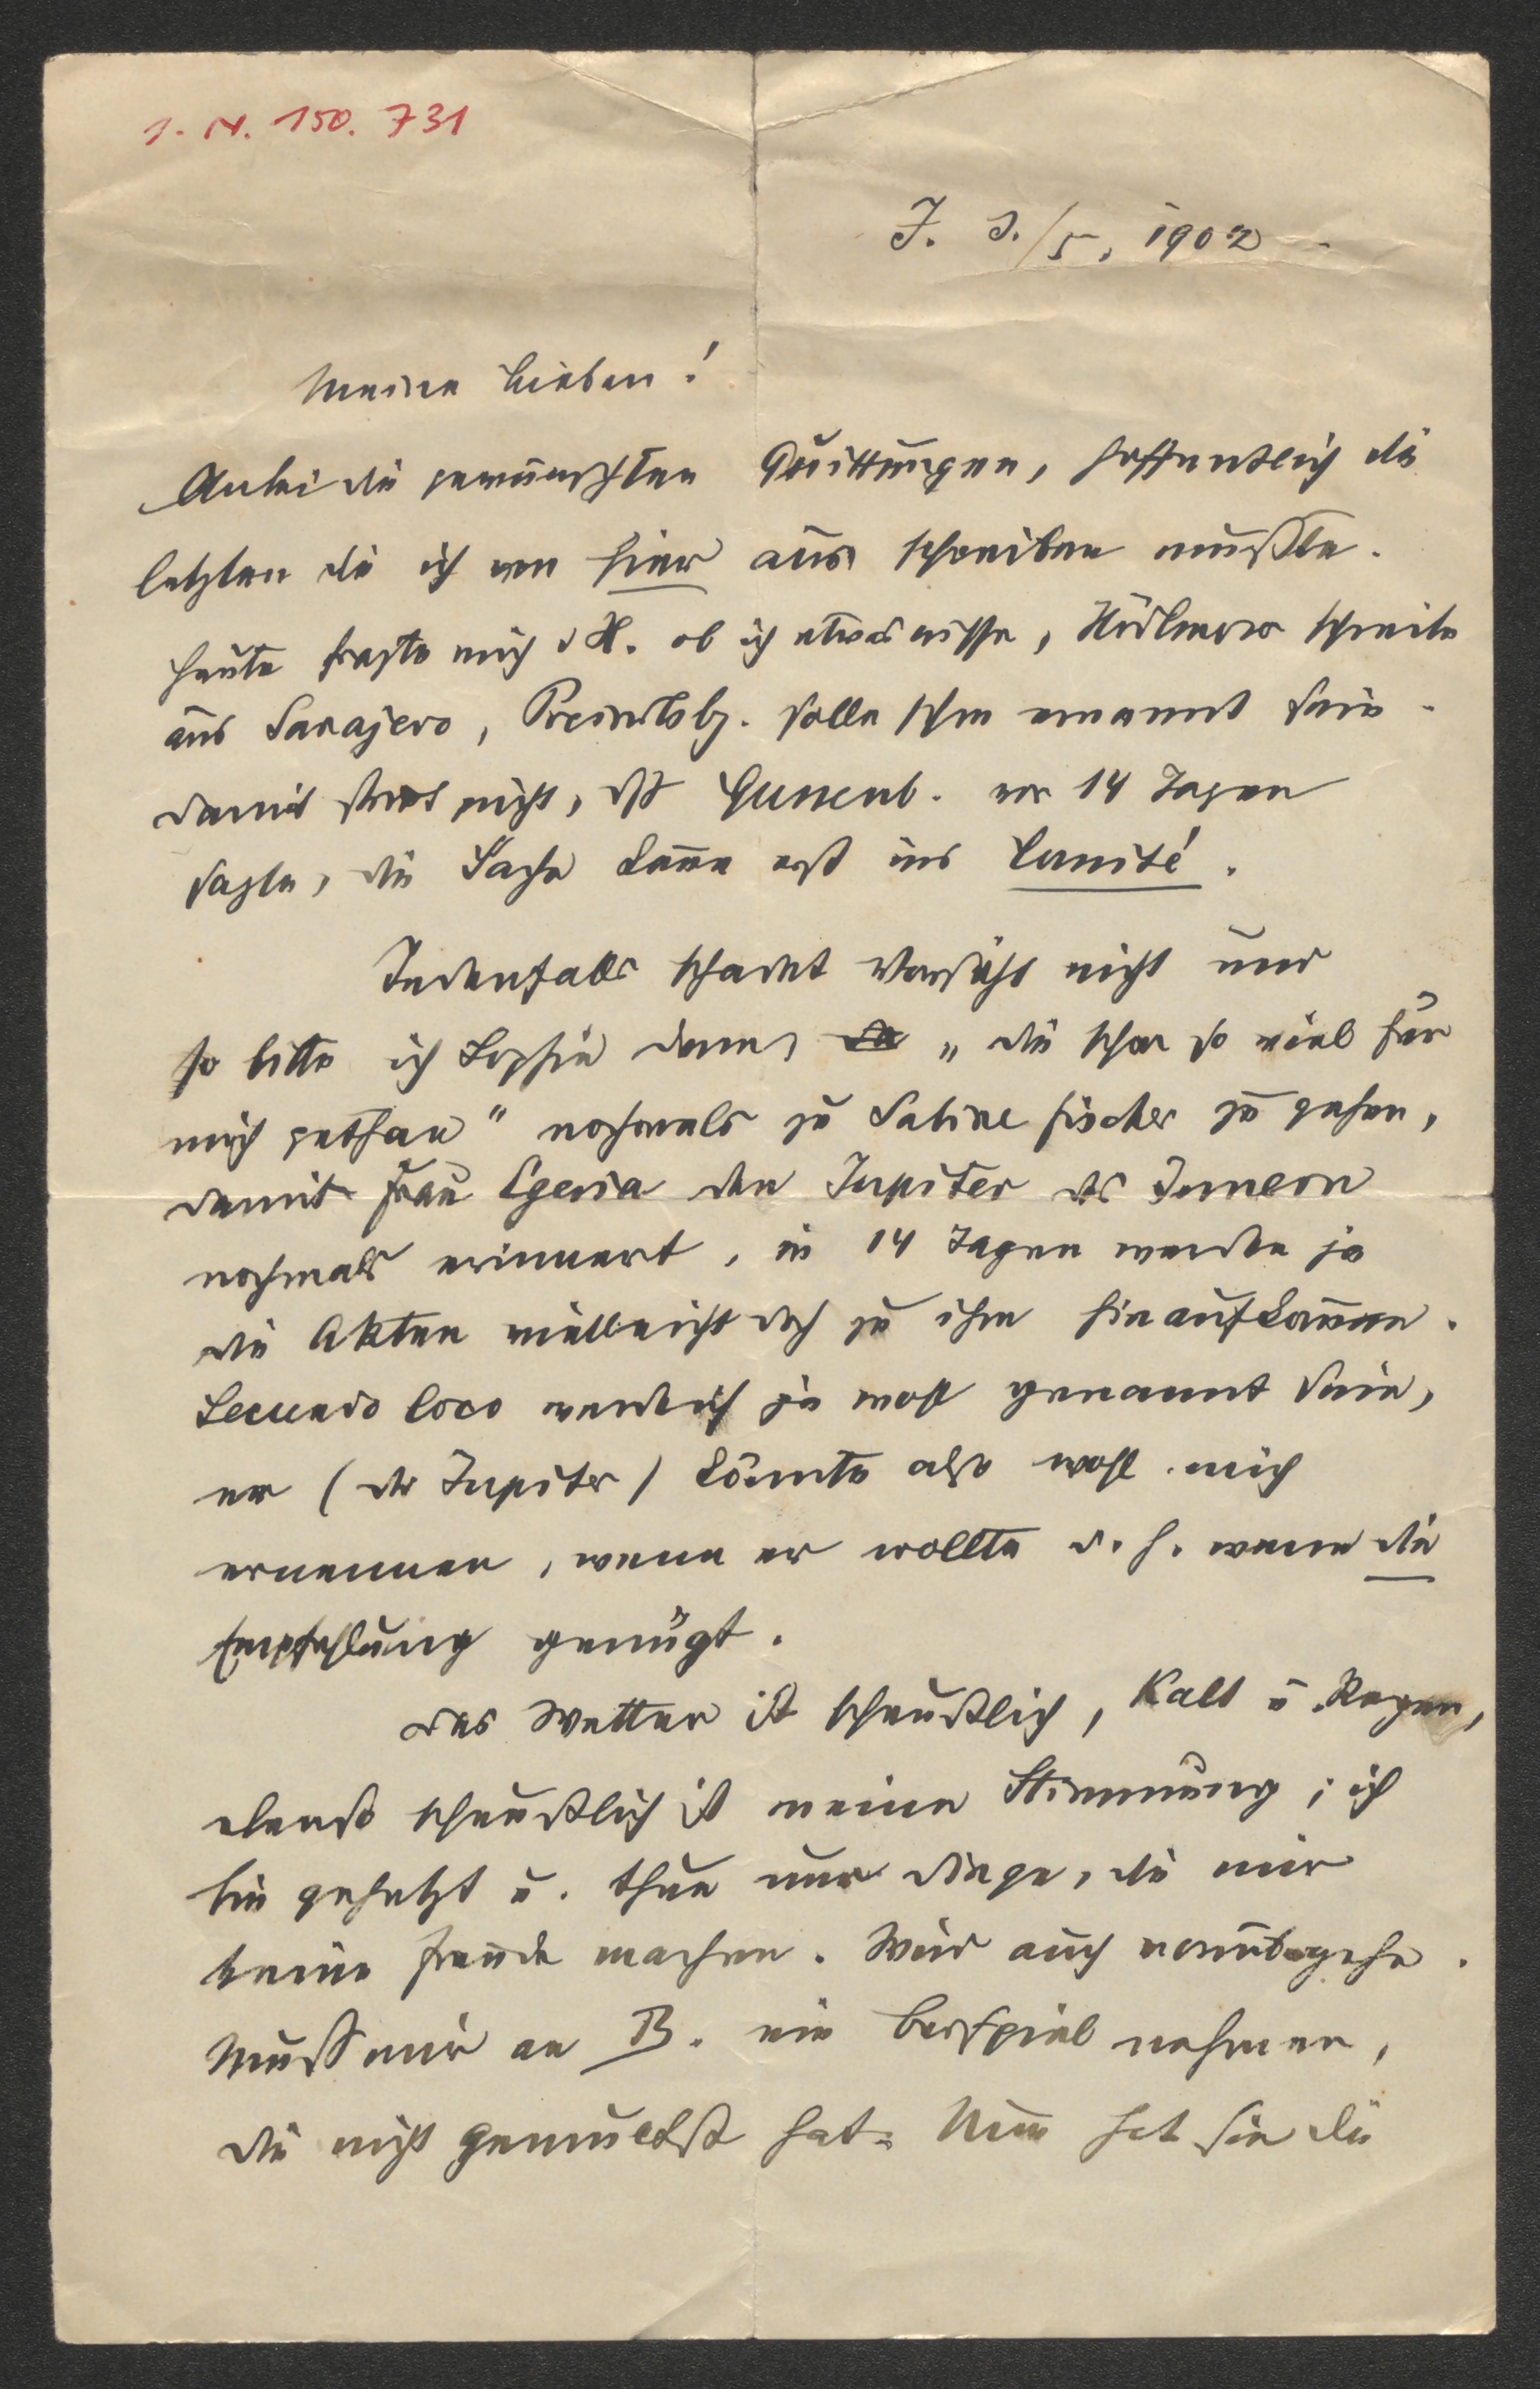 I. N. 150.731
J. 3./5. 1902
Meine Lieben!
Anbei die gewünschten Quittungen, hoffentlich die
letzten die ich von hier aus schreiben mußte.
Heute fragte mich H. ob ich etwas wisse, schreibe
aus Sarajevo, solle schon ernannt sein.
damit stimmt nicht, daß Gussenb. vor 14 Tagen
sagte, die Sache käme erst ins Comité.
Jedenfalls schadet Vorsicht nicht und
so bitte ich Sophie denn, „die schon so viel für
mich gethan“ nochmals zu Sabine Fischer zu gehen,
damit Frau Egeria den Jupiter des Innern
nochmals erinnert, in 14 Tagen werden ja
die Akten vielleicht doch zu ihm hinaufkommen.
Secundo loco werde ich ja wohl genannt sein,
er (der Jupiter) könnte also wohl mich
ernennen, wenn er wollte d. h. wenn die
Empfehlung genügt.
Das Wetter ist scheußlich, Kalt u Regen,
ebenso scheußlich ist meine Stimmung; ich
bin gehetzt u. thue nur Dinge, die mir
keine Freude machen. Wird auch vorübergehn.
Muß mir an B. ein Beispiel nehmen,
die nicht gemuckst hat. Nun hat sie die